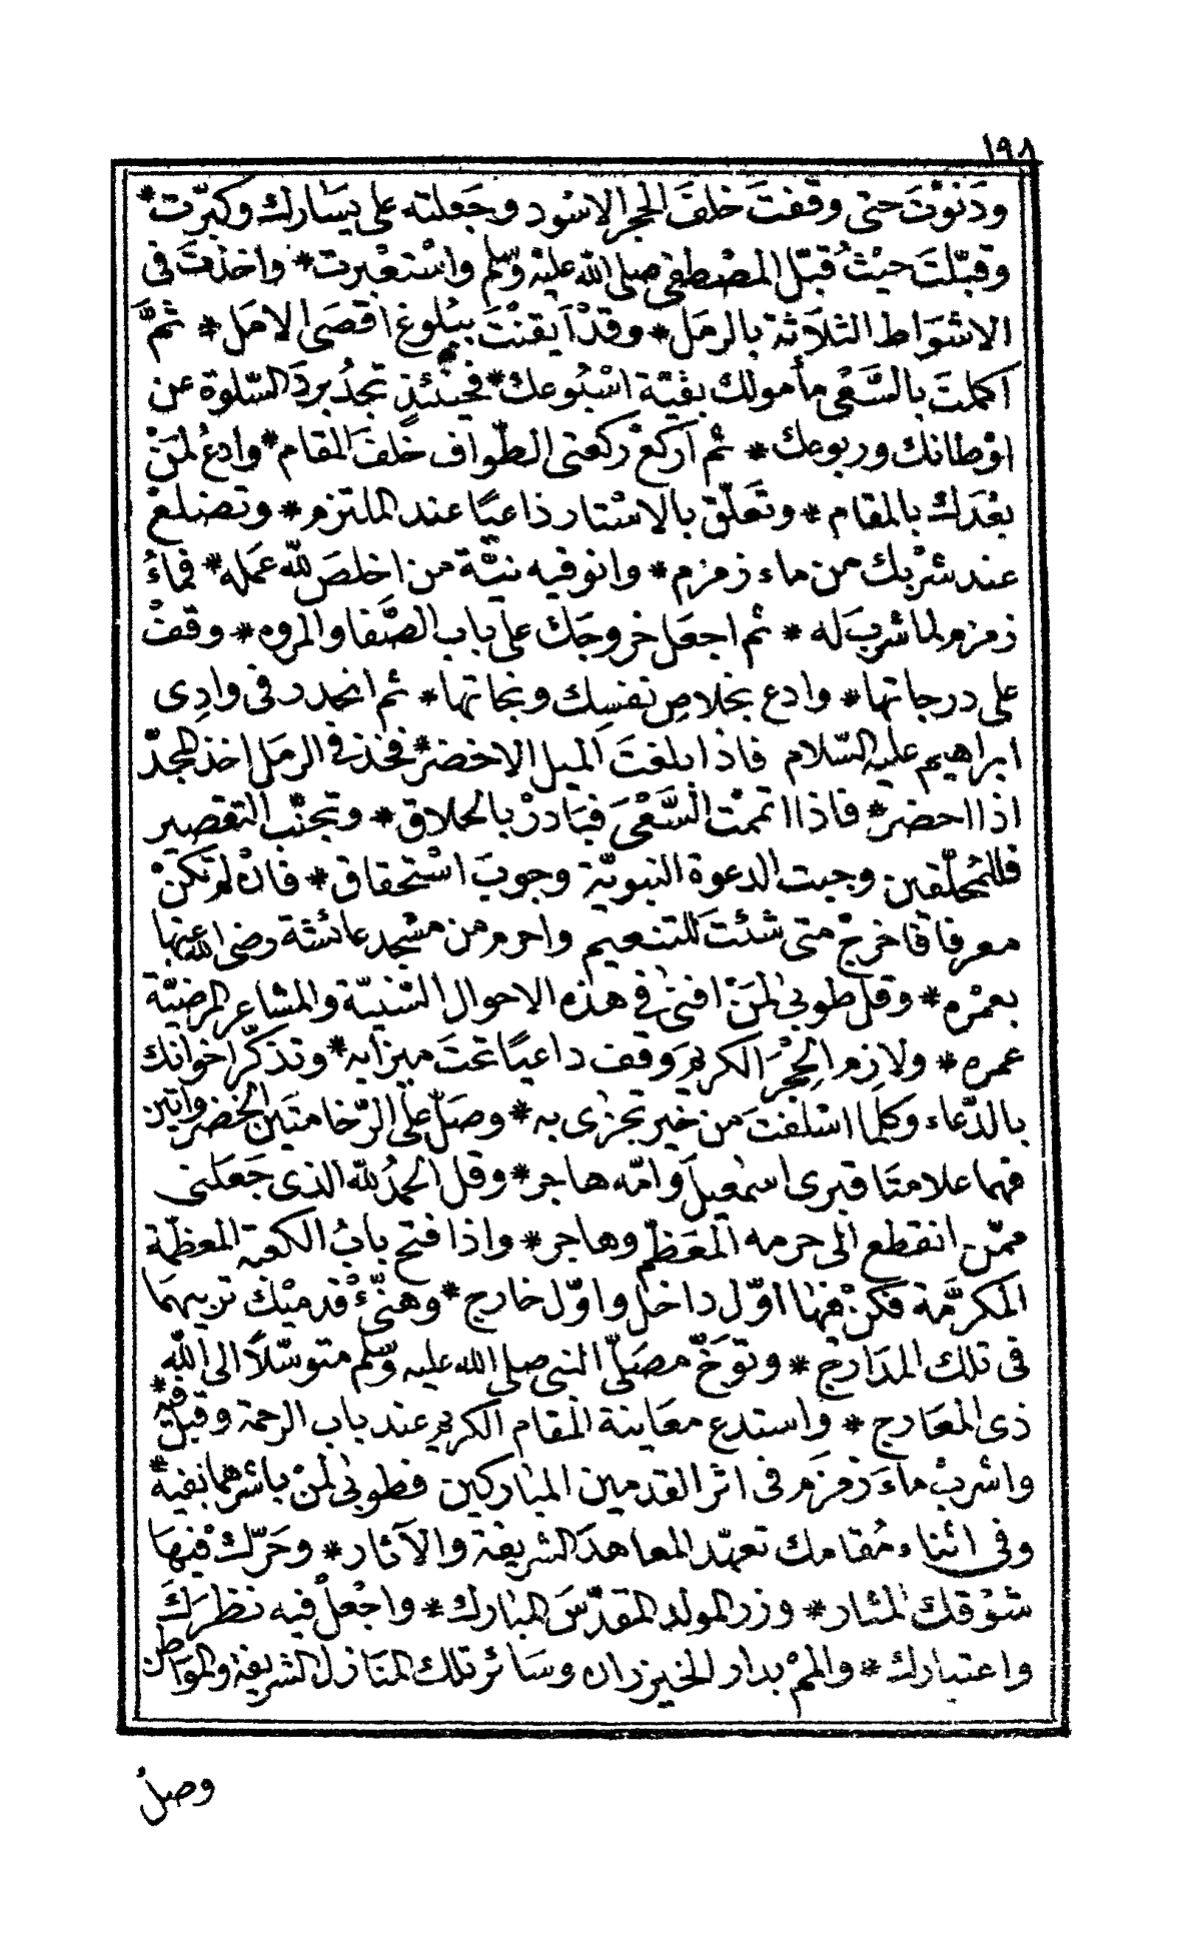 ١٩٨
ودَنوْتَ حتى وقفتَ خلفَ الحجر الاسْود وجَعلته على يسَارك وكبّرت*
وقبّلتَ حيْثُ قبّل المصْطفى صلى الله عليْه وسّلم واسْتعْبرت* واخذْتَ فى
الاشوَاط الثلاَثة بالرمَل* وقدْ اَيقنْتَ ببُلوغ اقصَى الامَل* ثمَّ
اكملتَ بالسَّعْى مأمولك بقيّة اسْبُوعك* فحينئذٍ تجدُ بردَ السّلوة عن
اوْطانك وربوعك* ثم اَركعْ ركعتى الطّواف خَلفَ المقام* وادعُ لمَنْ
بعْدَك بالمقام* وتعَلّق بالاسْتار داعيًا عند الملتزم* وتضلعْ
عند شرْبك من ماء زمزم* وانو فيه نيّة من اخلصَ للّه عمَله* فماءُ
زمزم لما شربَ له* ثم اجعَل خروجَك على باب الصَّفا والمروه* وقفْ
على درجاتها* وادع بخلاصِ نفسِك ونجاتها* ثم انحدر فى وادِى
ابراهيم عليه السّلام فاذا بلغتَ الميل الاخضر* فخذ فى الرمَل اخذ المجدّ
اذا احضر* فاذا اتممْت السَّعْىَ فبَادرْ بالحلاق* وتجنّب التقصير
فللمُحلّقين وجبت الدعوة النبويّة وجوبَ اسْتحقاق* فانْ لم تكنْ
معرفا فاخرجْ متى شئتَ للتنعيم واحرم من مسْجد عائشة رضى الله عنها
بعمْره* وقل طوبىٰ لمَنْ افنىٰ فى هذه الاحوال السّنيّة والمشاعر المرضيّة
عمره* ولازِم الحِجْرَ الكريمَ وقف داعيًا تحتَ ميزابه* وتذكّر اخوانك
بالدّعاء وكلما اسْلفتَ من خير تجزٰى به* وصَلّ على الرّخامتَين الخضراوَاين
فهما علامتَا قبرى اسمٰعيلَ وامّه هاجر* وقل الحمدُ للّه الذى جَعَلنى
ممّن انقطع الى حرمه المعَظّم وهاجر* واذا فتح بابُ الكعبة المعظّمة
المكرَّمة فكنْ منها اوّل داخل واوّل خارج* وهنّئْ قدميْك تربيهمَا
فى تلك المدَارج* وتوَخّ مصَلّى النبى صلى الله عليه وسّلم متوسّلاً الى اللّه
ذى المعَارج* واستدع معَاينة المقام الكريم عند باب الرحمة وقبّلْ فيه*
واشربْ ماءَ زمزَم فى اثر القدمين المبَاركين فطوبىٰ لمنْ باشرهما بفيه*
وفى اثنَاء مُقامك تعهّد المعاهدَ الشريفة والآثار* وحَرّك فيْهَا
شوْقك المثار* وزر المولد المقدّسَ المبَارك* واجْعلْ فيه نظرَكَ
واعتبارك* والممْ بدار الخيزران وسَائر تلك المنَازل الشريفة والموَاطن
وصلْ